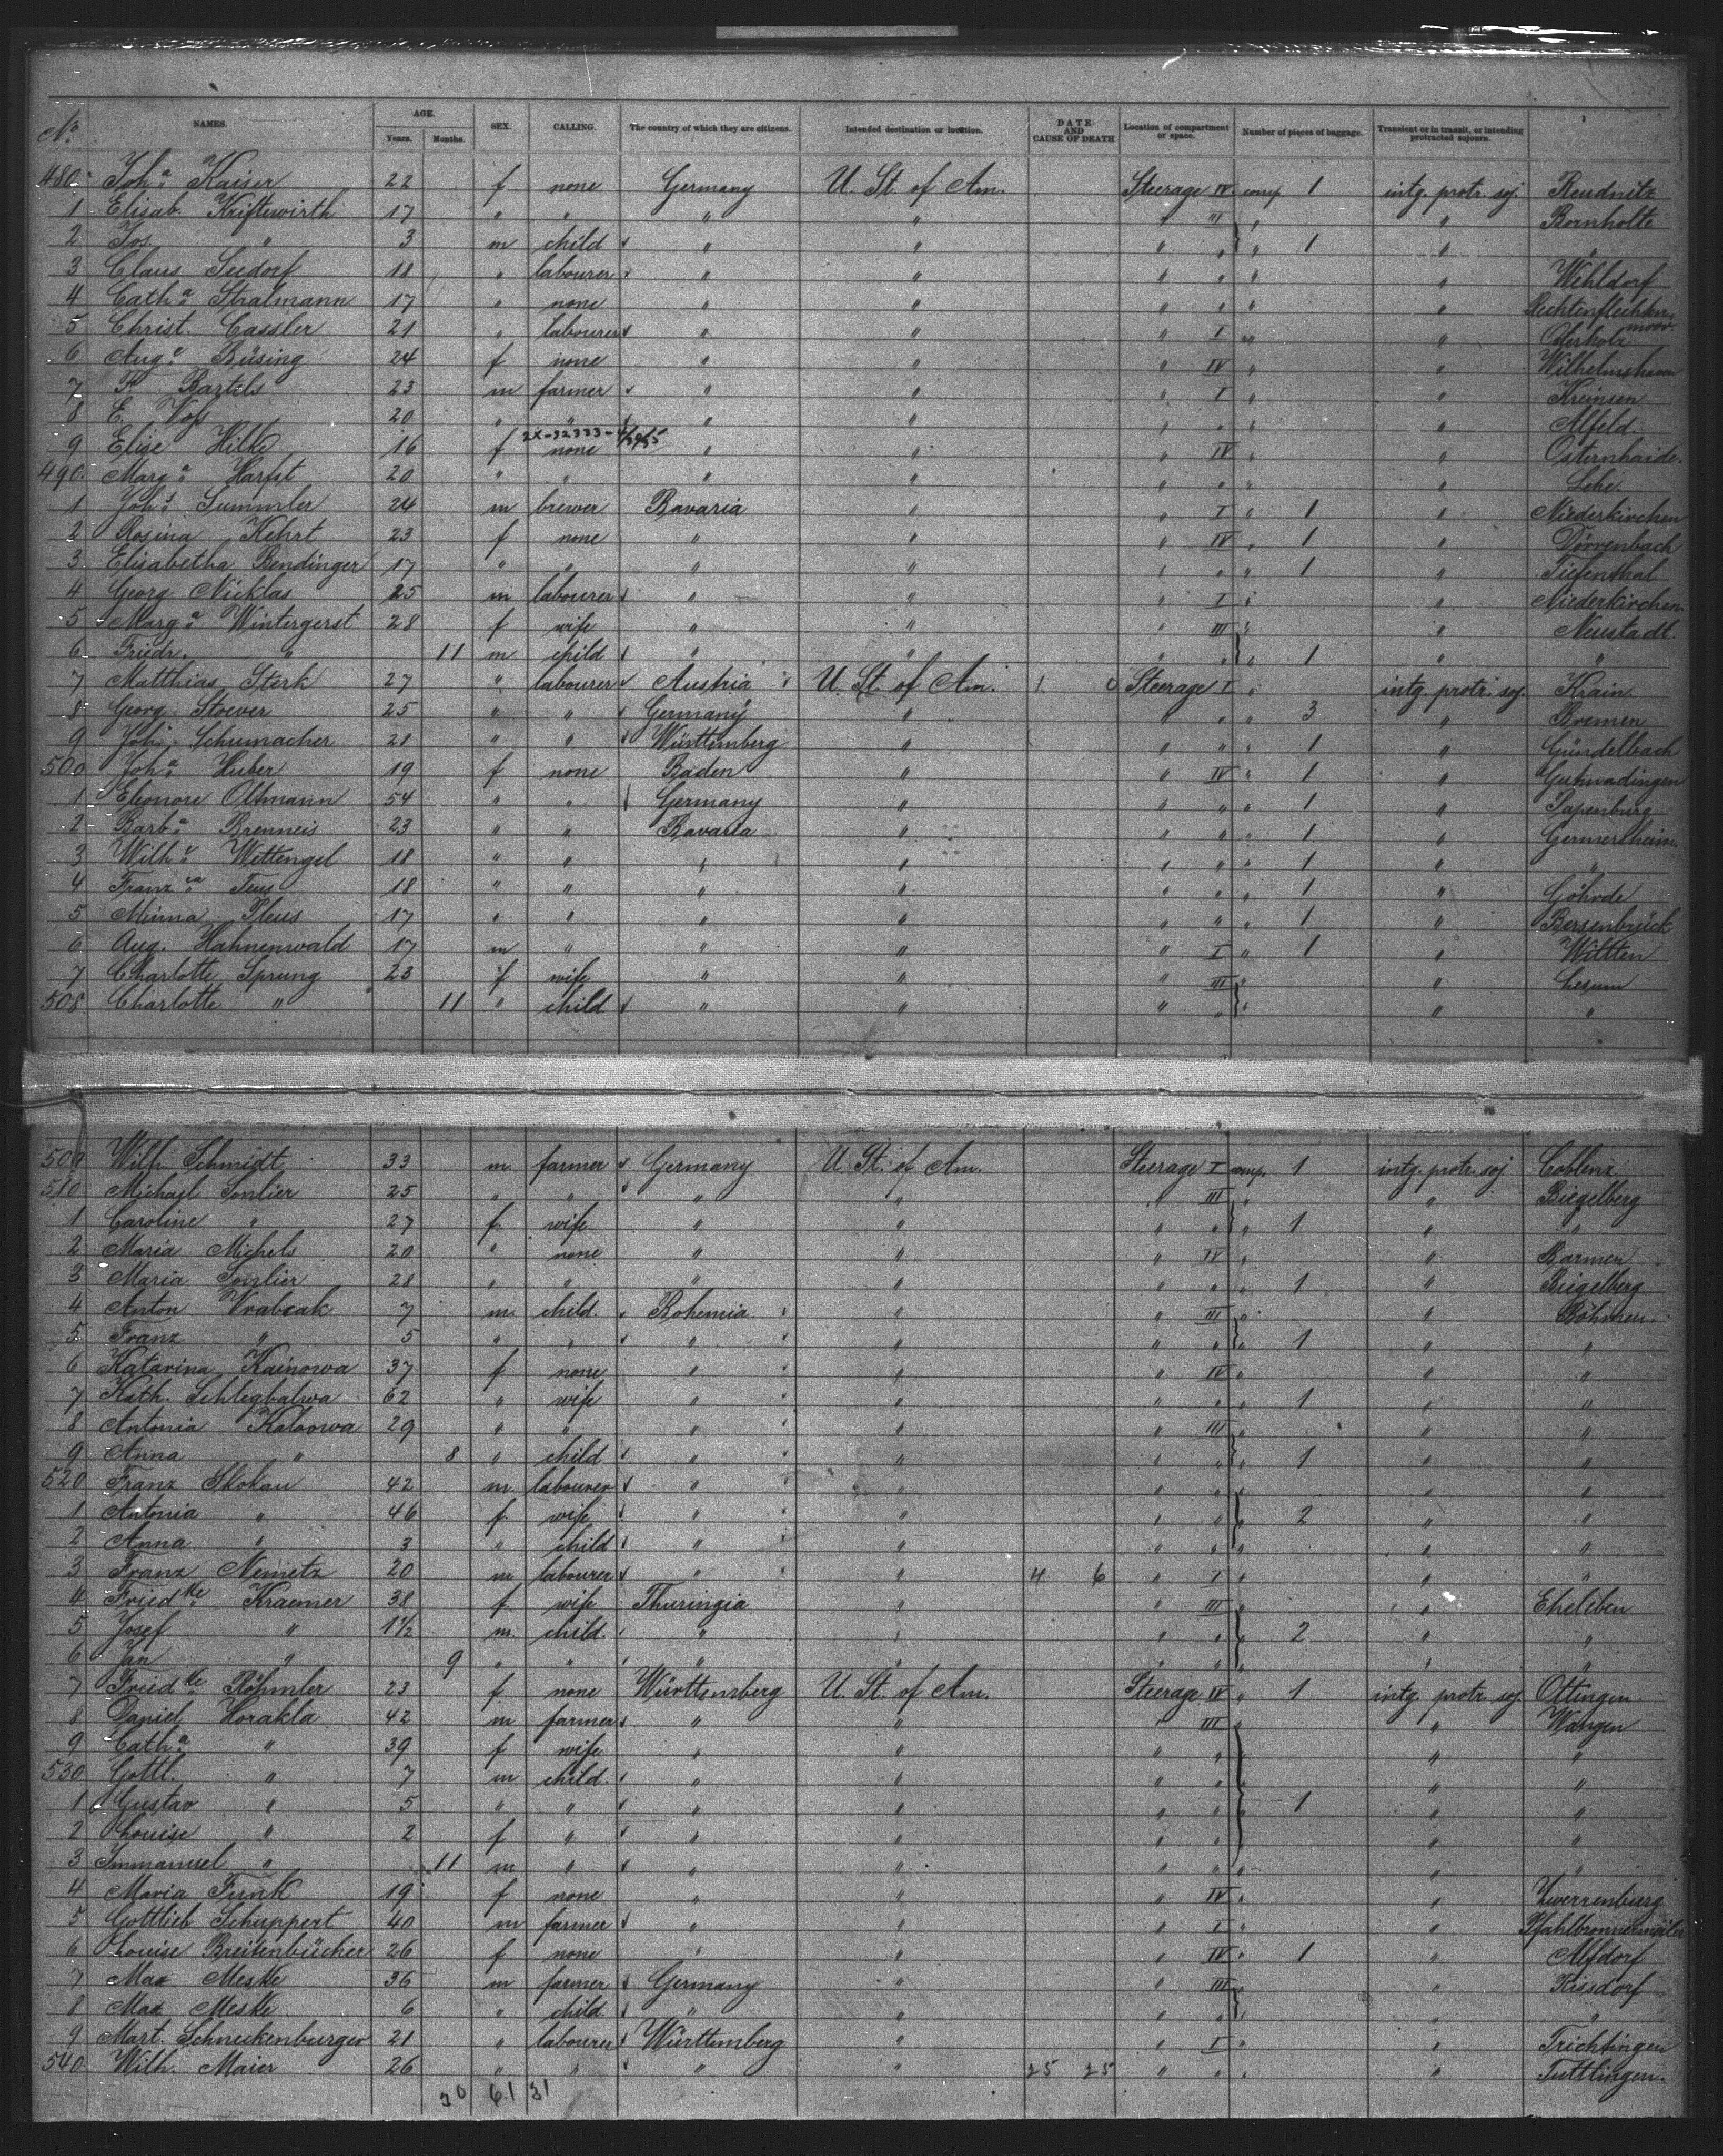 No. NAMES. AGE. Years. Months. SEX. CALLING. The country of which they are citizens. Intended destination or location. DATE AND CAUSE OF DEATH Location of compartment or space. Number of pieces of baggage. Transient or in transit, or intending protracted sojourn.
480 Joh.a Kaiser 22 f none Germany U. St. of Am. Steerage IV comp. 1 intg. protr. soj. Reudnitz
1 Elisab. Kriftewirth 17 " " " " " III " " Bornholte
2 Jos. " 3 m child " " " " " 1 " "
3 Claus Seedorf 18 " labourer " " " " " " Wehldorf
4 Cath.a Stralmann 17 " none " " " " " "
5 Christ. Cassler 21 " labourer " " " I " " Osterholz
6 Aug.e Büsing 24 f none " " " IV " " Wilhelmshaven
7 F. Bartels 23 m farmer " " " I " " Kreinsen
8 E. Voß 20 " " " " " " " " Alfeld
9 Elise Hilke 16 f none " " " IV " " Osternhaide.
490. Marg.a Harfst 20 " " " " " " " " Lehe.
1 Joh.s Summler 24 m brewer Bavaria " " I " 1 " Niederkirchen
2 Rosina Kehrt 23 f none " " " IV " 1 " Dörrenbach
3 Elisabetha Bendinger 17 " " " " " " " 1 " Tiefenthal
4 Georg Nicklas 25 m labourer " " " I " " Niederkirchen
5 Marg.a Wintergerst 28 f wife " " " III " " Neustadt.
6 Friedr. " 11 m child " " " " 1 " "
7 Matthias Sterk 27 " labourer Austria U. St. of Am. 1 0 Steerage I " intg. protr. soj. Krain
8 Georg Stoever 25 " " Germany " " " " 3 " Bremen
9 Joh. Schumacher 28 " " Württemberg " " " " 1 " Gündelbach
500 Joh.a Huber 19 f none Baden " " IV " 1 " Gutmadingen
1 Eleonore Oltmann 54 " " Germany " " " " 1 " Papenburg
2 Barb.a Brenneis 23 " " Bavaria " " " " 1 " Germersheim.
3 Wilh.e Wettengel 18 " " " " " " " 1 " "
4 Franz.ca Teus 18 " " " " " " " 1 " Göhrde
5 Minna Pleus 17 " " " " " " " 1 " Bersenbrück
6 Aug. Hahnenwald 17 m " " " " I " 1 " Witten
7 Charlotte Sprung 23 f wife " " " III " " Lesum
508 Charlotte " 11 " child " " " " " " "
509 Wilh. Schmidt 33 m farmer Germany U. St. of Am. Steerage I comp. 1 intg. protr. soj Coblenz
510 Michael Sonlier 25 " " " " " III " " Biegelberg
1 Caroline " 27 f wife " " " " " 1 " "
2 Maria Michels 20 " none " " " IV " " Barmen
3 Maria Sonlier 28 " " " " " " " 1 " Biegelberg
4 Anton Vrabcak 7 m child. Bohemia " " III " " Böhmen
5 Franz " 5 " " " " " " " 1 " "
6 Katarina Kainowa 37 f none " " " IV " " "
7 Kath. Schlegbalwa 62 " wife " " " " " 1 " "
8 Antonia Kaloowa 29 " " " " " III " " "
9 Anna " 8 " child " " " " " 1 " "
520 Franz Skokan 42 m. labourer " " " " " " "
1 Antonia " 46 f wife " " " " " 2 " "
2 Anna " 3 " child " " " " " " "
3 Franz Nemetz 20 m labourer " " 4 6 " I " " "
4 Fried.ke Kraemer 38 f wife Thuringia " " III " " Eheleben
5 Josef " 1½ m. child. " " " " " 2 " "
6 Jan " 9 " " " " " " " " "
7 Fried.ke Böhmler 23 f none Württemberg U. St. of Am. Steerage IV " 1 intg. protr. soj. Ottingen
8 Daniel Horakla 42 m farmer " " " III " " Wangen
9 Cath.a " 39 f wife " " " " " " "
530 Gottl. " 7 m child. " " " " " "
1 Gustav " 5 " " " " " " " 1 " "
2 Louise " 2 f " " " " " " "
3 Immanuel " 11 m " " " " " " " "
4 Maria Funk 19 f none " " " IV " " Zwerrenberg
5 Gottlieb Schuppert 40 m farmer " " " I " " Pfahlbronnerweiler
6 Louise Breitenbücher 26 f none " " " IV " 1 " Alfdorf
7 Max Meske 36 m farmer Germany " " III " " Kissdorf
8 Max Meske 6 " child. " " " " " " "
9 Mart. Schneckenburger 21 " labourer Württemberg " " I " " Trichtingen
540. Wilh. Maier 26 " " " " 25 25 " " " " Tuttlingen.
30 61 31